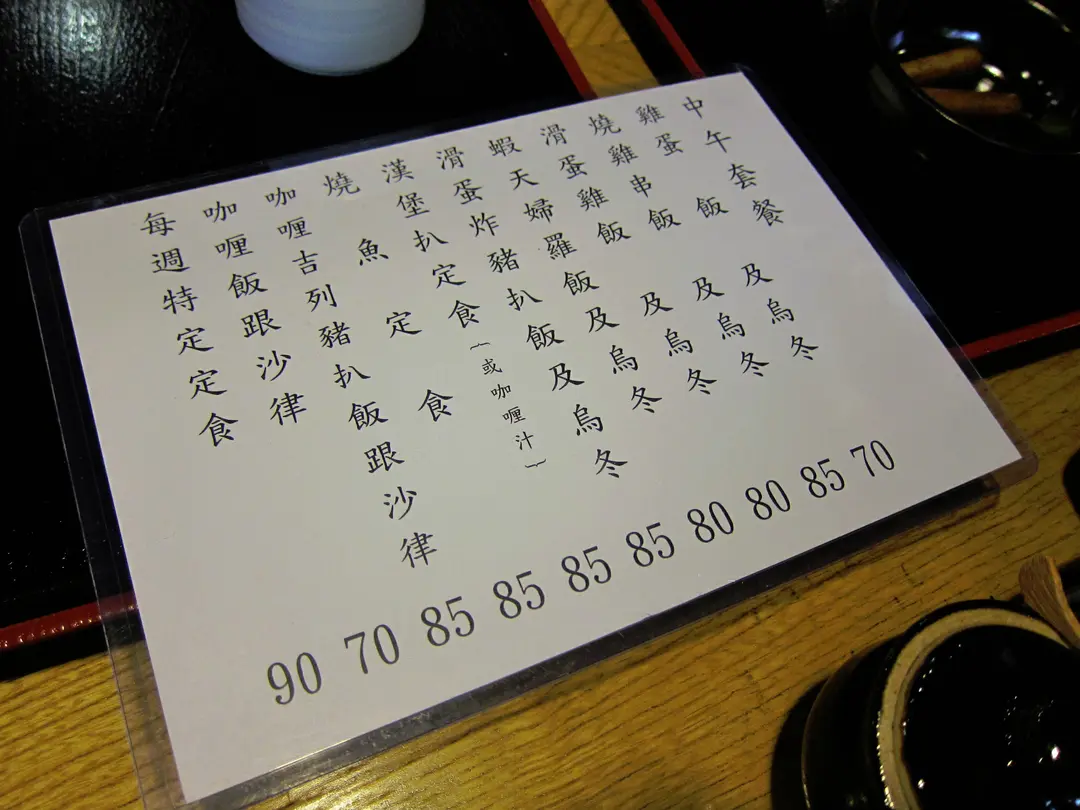 中午套餐
雞蛋飯及烏冬 70
燒雞串飯及烏冬 85
滑蛋雞飯及烏冬 80
蝦天婦羅飯及烏冬 80
滑蛋炸豬扒飯及烏冬 85
漢堡扒定食(或咖喱汁) 85
燒魚定食 85
咖喱吉列豬扒飯跟沙律 85
咖喱飯跟沙律 70
每週特定定食 90